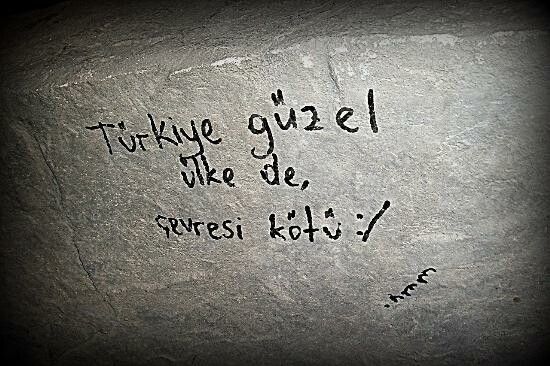 Türkiye güzel
ülke de,
çevresi kötü :/